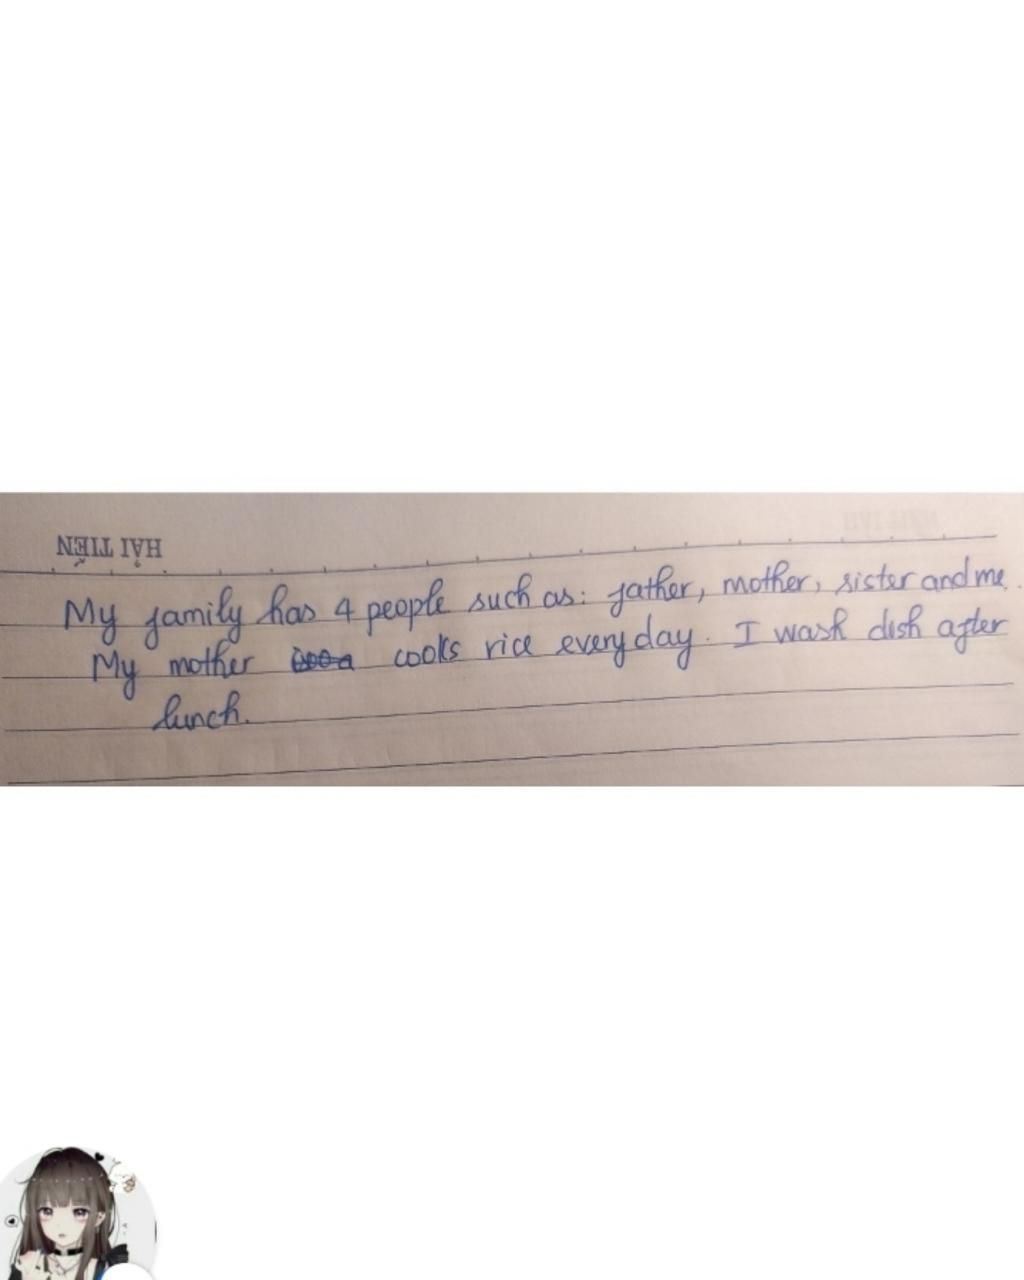 HẢI TIẾN
My family has 4 people such as: father, mother, sister and me.
My mother cooks rice every day. I wash dish after
lunch.